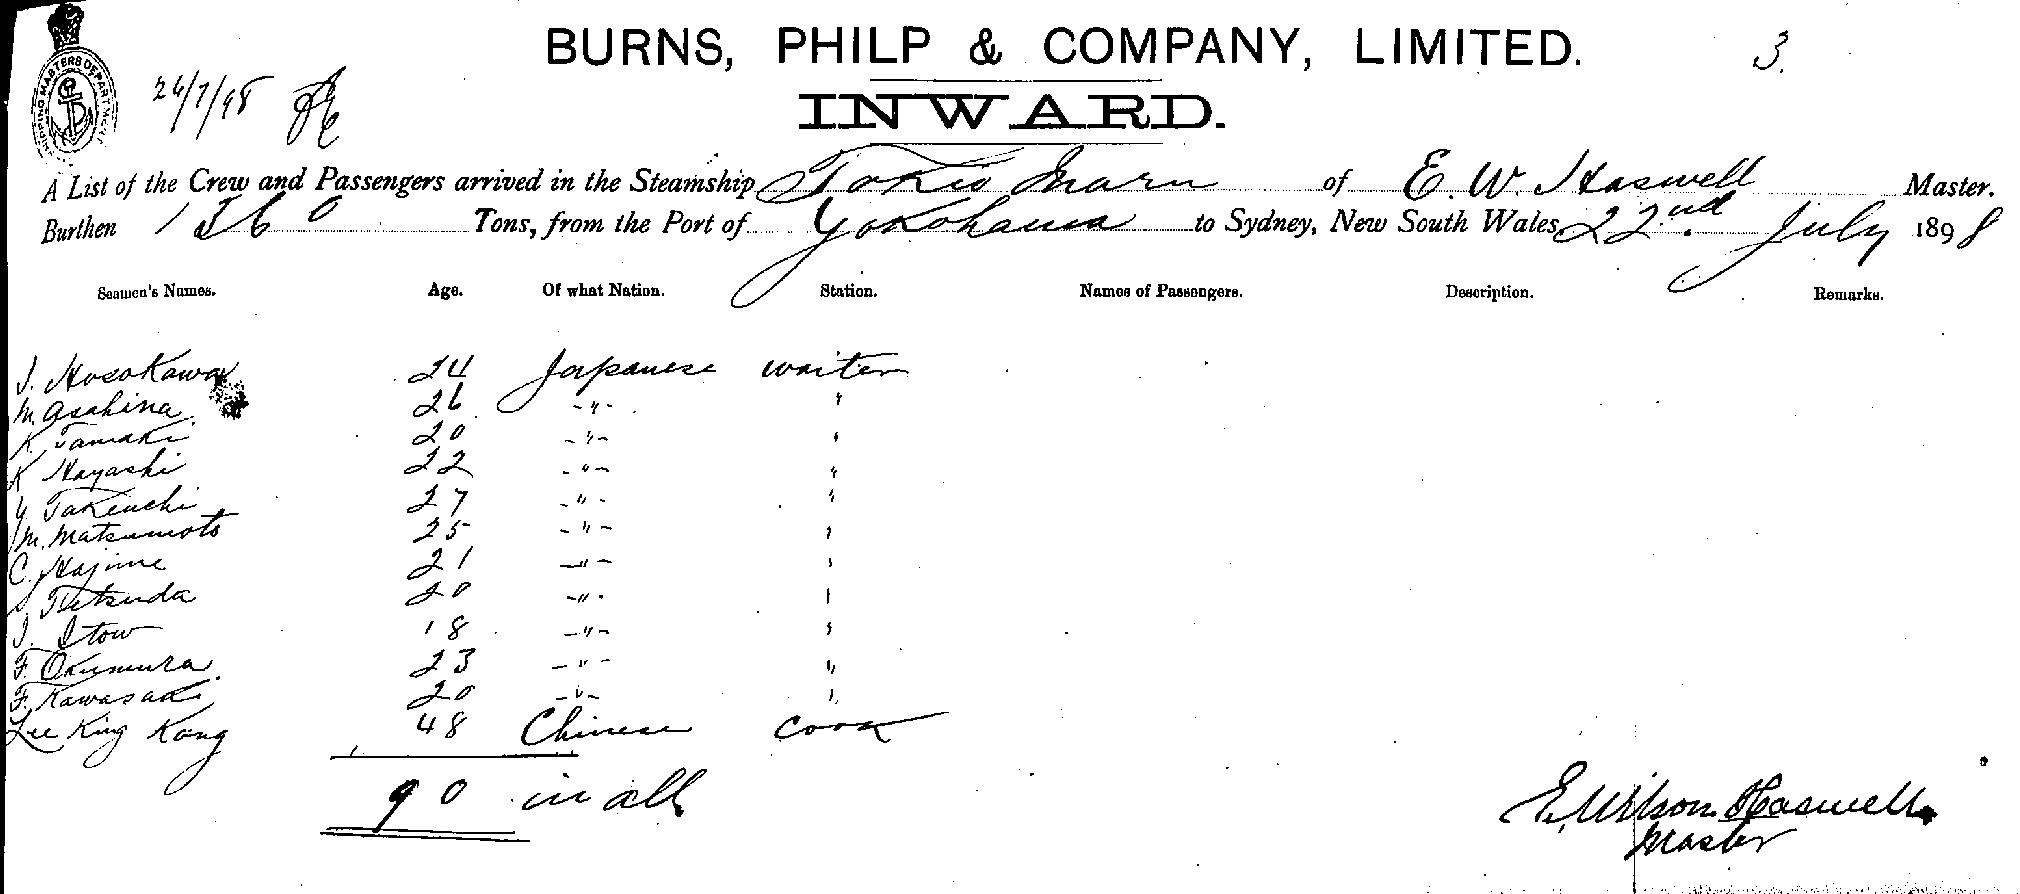 BURNS, PHILP & COMPANY, LIMITED. 3.
SHIPPING MASTERS DEPARTMENT
26/7/98
INWARD.
A List of the Crew and Passengers arrived in the Steamship Tokio Maru of E. W. Haswell Master.
Burthen 1360 Tons, from the Port of Yokohama to Sydney, New South Wales 22nd July 1898
Seamen's Names. Age. Of what Nation. Station. Names of Passengers. Description. Remarks.
J. Hosokawa 24 Japanese waiter
M. Asahina 26 -"- "
K. Tamaki 20 -"- "
K Hayashi 22 -"- "
Y Takeuchi 27 -"- "
M. Matsumoto 25 -"- "
C. Hajime 21 -"- "
Tetsuda 20 -"- "
J. Itow 18 -"- "
F. Okumura 23 -"- "
F. Kawasaki 20 -"- "
Lee King Kong 48 Chinese Cook
90 in all
E. Wilson Haswell
Master